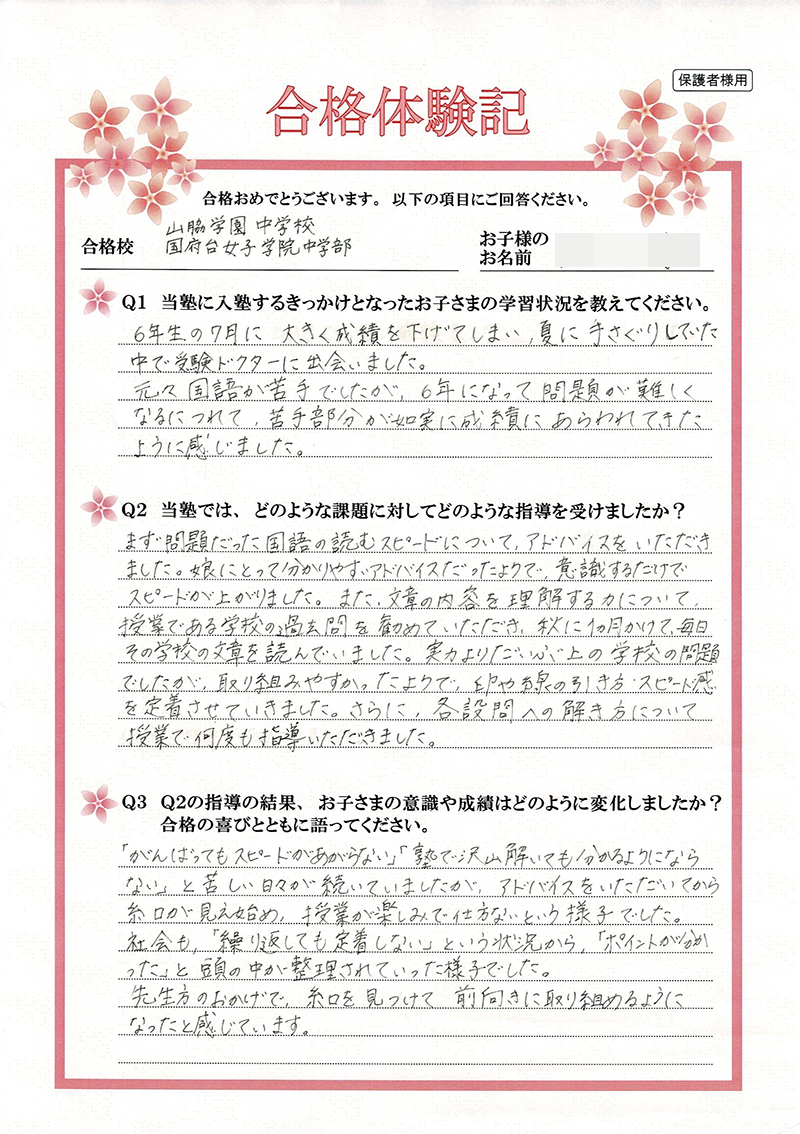 保護者様用
合格体験記
合格おめでとうございます。以下の項目にご回答ください。
合格校
山脇学園中学校
国府台女子学院中学部
お子様の
お名前
Q1 当塾に入塾するきっかけとなったお子さまの学習状況を教えてください。
6年生の7月に 大きく成績を下げてしまい、夏に手さぐりしていた
中で受験ドクターに出会いました。
元々国語が苦手でしたが、6年になって問題が難しく
なるにつれて、苦手部分が如実に成績にあらわれてきた
ように感じました。
Q2 当塾では、どのような課題に対してどのような指導を受けましたか？
まず問題だった国語の読むスピードについて、アドバイスをいただき
ました。娘にとって分かりやすいアドバイスだったようで、意識するだけで
スピードが上がりました。また、文章の内容を理解する力について、
授業である学校の過去問を勧めていただき、秋に1ヵ月かけて、毎日
その学校の文章を読んでいました。実力よりだいぶ上の学校の問題
でしたが、取り組みやすかったようで、印や線の引き方・スピード感
を定着させていきました。さらに、各設問への解き方について
授業で何度も指導いただきました。
Q3 Q2の指導の結果、お子さまの意識や成績はどのように変化しましたか？
合格の喜びとともに語ってください。
「がんばってもスピードがあがらない」「塾で沢山解いても分かるようになら
ない」と苦しい日々が続いていましたが、アドバイスをいただいてから
糸口が見え始め、授業が楽しみで仕方ないという様子でした。
社会も、「繰り返しても定着しない」という状況から、「ポイントが分か
った」と頭の中が整理されていった様子でした。
先生方のおかげで、糸口を見つけて 前向きに取り組めるように
なったと感じています。